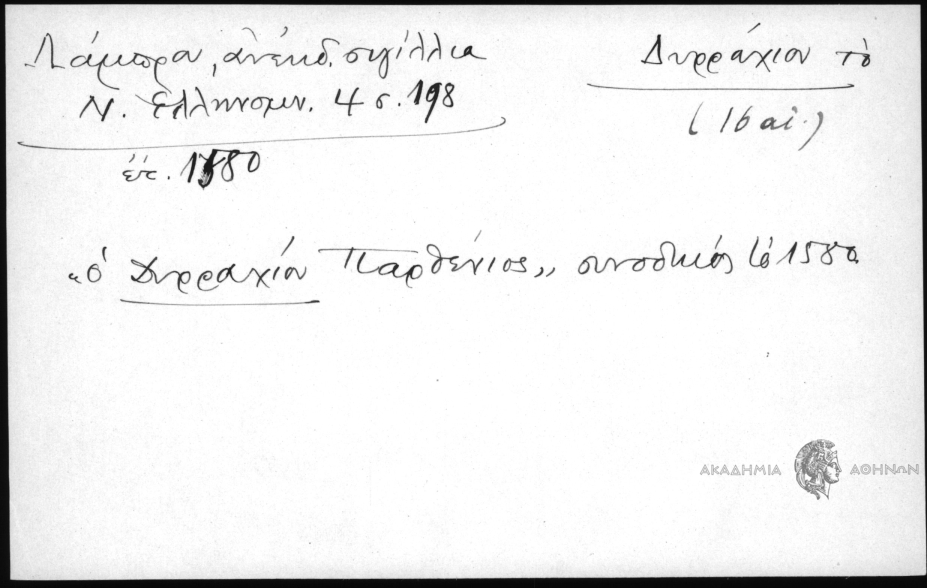 Λάμπρου, ἀνέκδ. σιγίλλια
Ν. Ἑλληνομν. 4 σ. 198
ἔτ. 1580
Δυρράχιον τὸ
(16 αἰ.)
„ὁ Δυρραχίου Παρθένιος„ συνοδικός 1580
ΑΚΑΔΗΜΙΑ ΑΘΗΝΩΝ